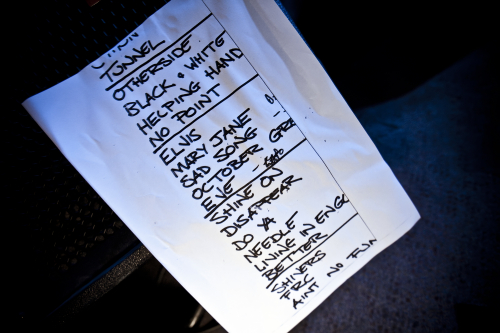 TUNNEL
OTHERSIDE
BLACK + WHITE
HELPING HAND
NO POINT
ELVIS
MARY JANE
SAD SONG
OCTOBER
DEVE
SHINE ON
DISAPPEAR
DO YA
NEEDLE
LIVING IN ENGL
BETTER
SHINERS
FRC
AINT NO FUN